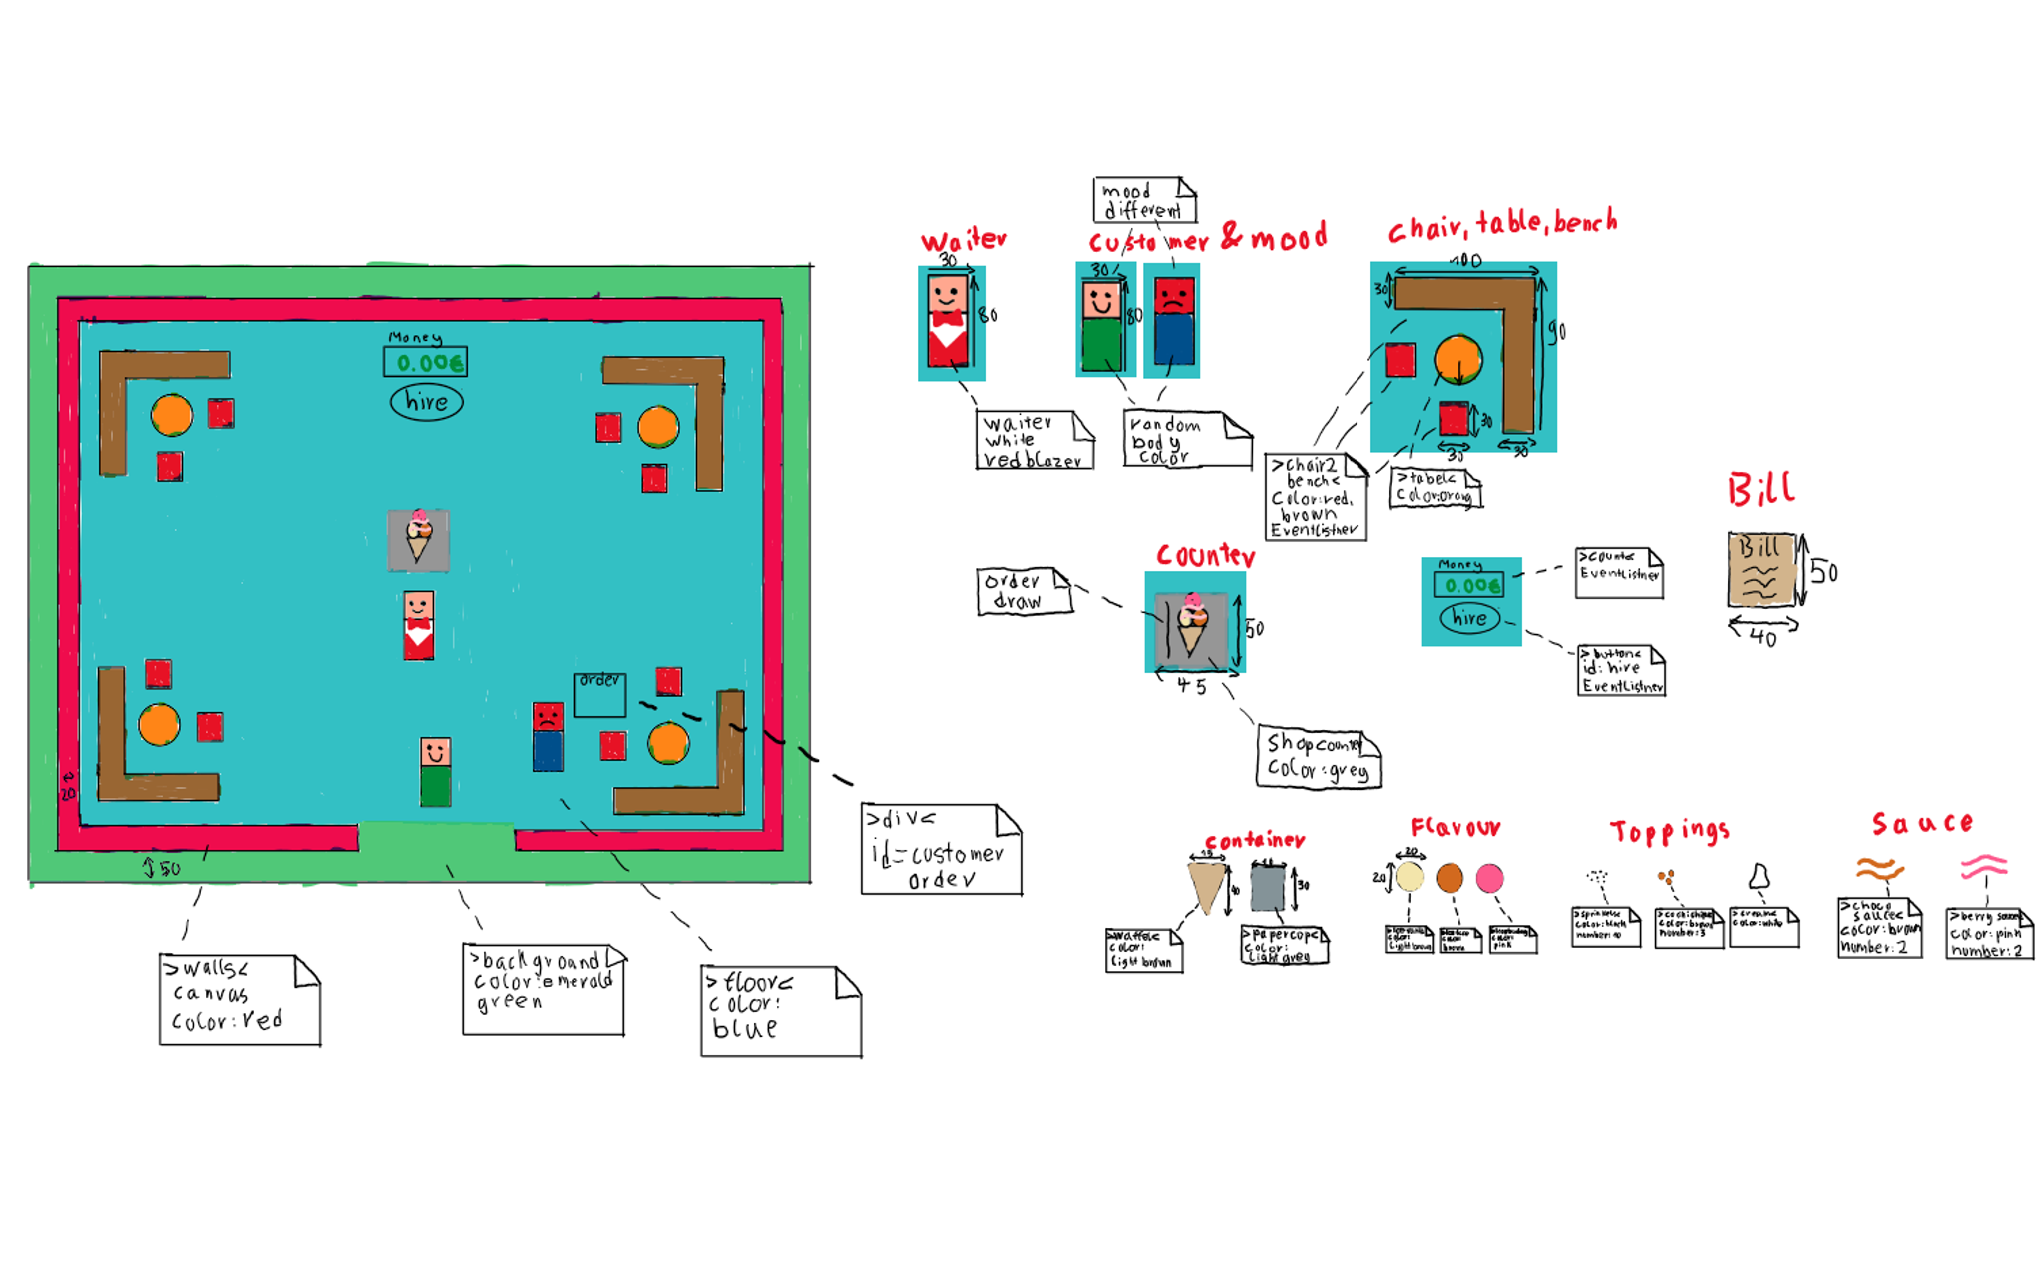 Money
0.00€
hire
order
20
50
>walls<
canvas
color:red
>background
color:emerald
green
>floor<
color:
blue
>div<
id=customer
order
mood
different
Waiter
30
80
waiter
white
redblazer
Customer & mood
30
80
random
body
color
Chair, table, bench
100
30
90
30
30
30
>chair2
bench<
Color:red,
brown
EventListner
>tabel<
Color:orang
Counter
order
draw
50
45
Shopcounter
color:grey
Money
0.00€
hire
>count<
EventListner
>button<
id:hire
EventListner
Bill
Bill
50
40
container
15
40
30
>waffel<
color:
light brown
>papercop<
color:
light grey
Flavour
20
20
color:
light brown
color:
pink
Toppings
color:black
number:10
number:3
>cream<
color:white
Sauce
>choco
sauce<
color:brown
number:2
>berry sauce
color:pink
number:2